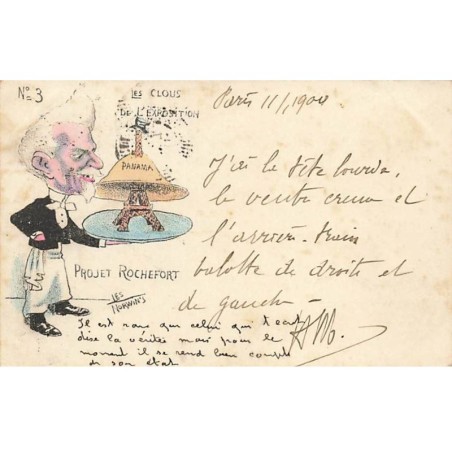 No 3
LES CLOUS
DE L'EXPOSITION
PANAMA
PROJET ROCHEFORT
LES
NORWIN'S
Paris 11/1904
J'ai la tête lourde,
le ventre creux et
l'arrière-train
balotte de droite et
de gauche
Il est rare que celui qui
dise la vérité mais pour le
moment il se rend bien compte
de son état